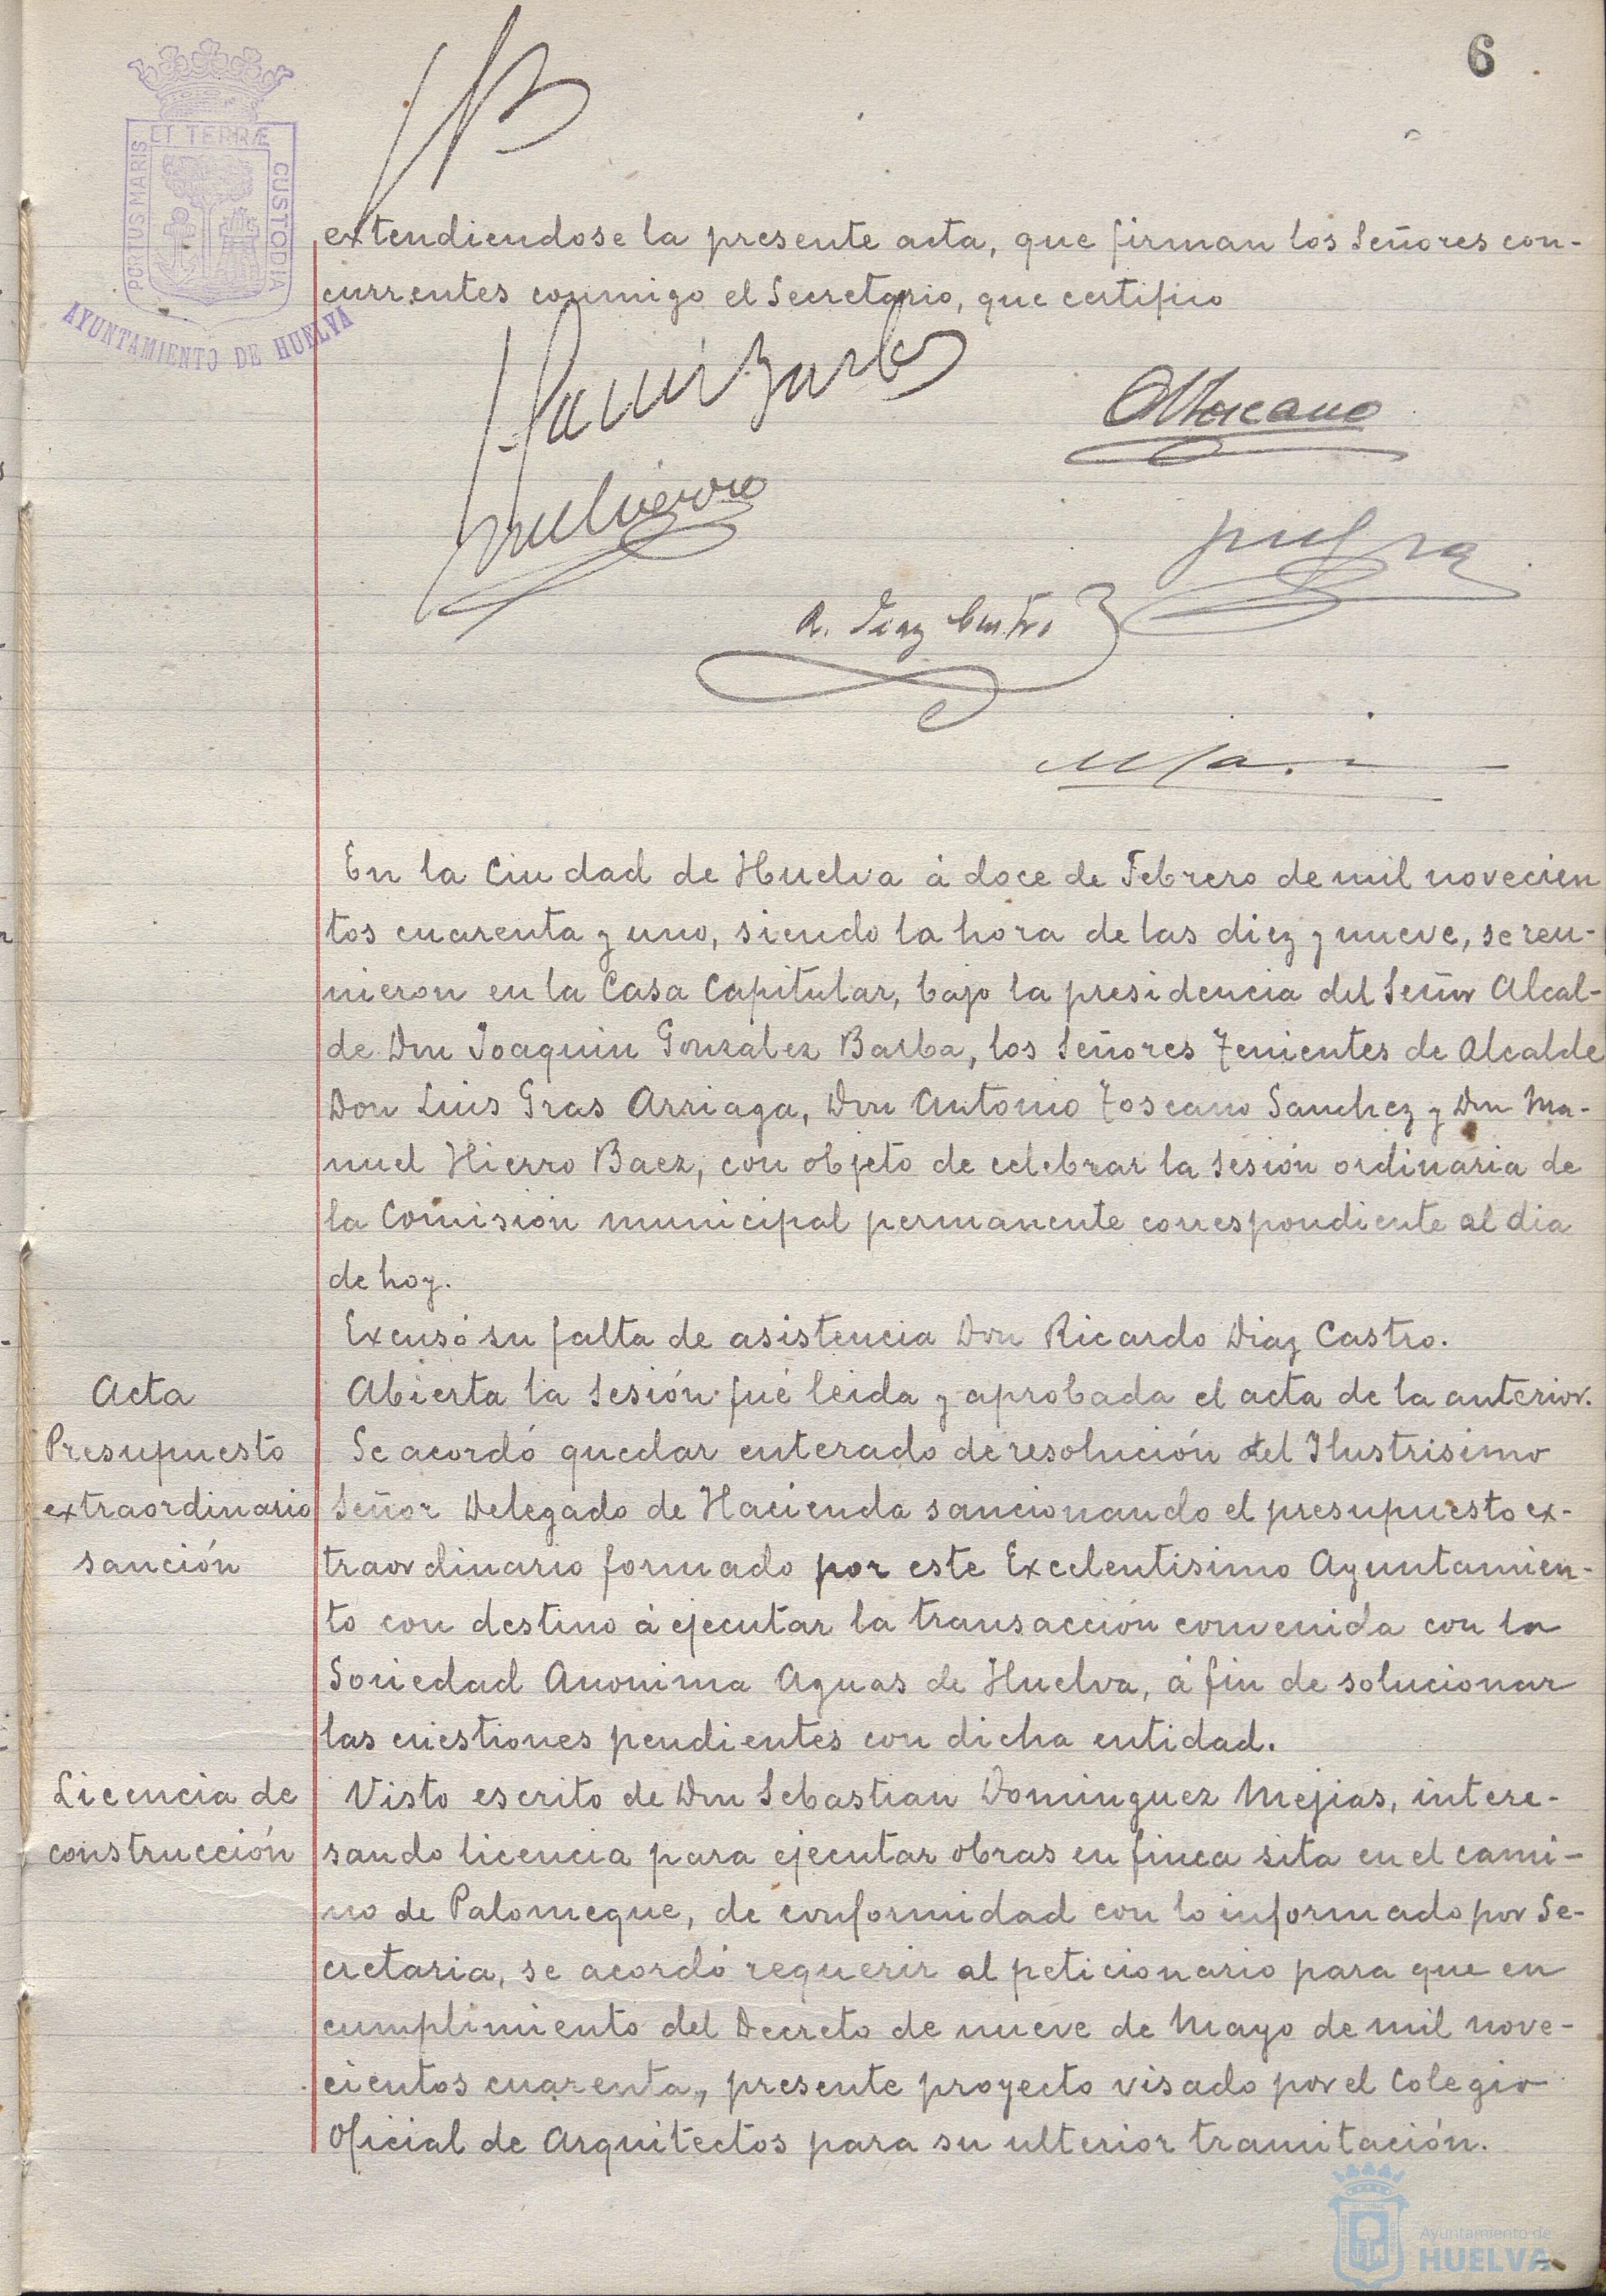 6
ET TERRÆ
PORTUS MARIS
CUSTODIA
AYUNTAMIENTO DE HUELVA
extendiendose la presente acta, que firman los Señores con-
currentes conmigo el Secretario, que certifico
A Toscano
R. Diaz Castro
En la Ciudad de Huelva á doce de Febrero de mil novecien
tos cuarenta y uno, siendo la hora de las diez y nueve, se reu-
nieron en la Casa Capitular, bajo la presidencia del Señor Alcal-
de Don Joaquin Gonzalez Barba, los Señores Tenientes de Alcalde
Don Luis Gras Arriaga, Don Antonio Toscano Sanchez y Don Ma-
nuel Hierro Baez, con objeto de celebrar la sesión ordinaria de
la Comisión municipal permanente correspondiente al dia
de hoy.
Excusó su falta de asistencia Don Ricardo Diaz Castro.
Acta
Abierta la sesión fué leida y aprobada el acta de la anterior.
Presupuesto
extraordinario
sanción
Se acordó quedar enterado de resolución del Ilustrisimo
Señor Delegado de Hacienda sancionando el presupuesto ex-
traordinario formado por este Excelentisimo Ayuntamien-
to con destino á ejecutar la transacción convenida con la
Sociedad Anonima Aguas de Huelva, á fin de solucionar
las cuestiones pendientes con dicha entidad.
Licencia de
construcción
Visto escrito de Don Sebastian Dominguez Mejias, intere-
sando licencia para ejecutar obras en finca sita en el cami-
no de Palomeque, de conformidad con lo informado por Se-
cretaria, se acordó requerir al peticionario para que en
cumplimiento del Decreto de nueve de Mayo de mil nove-
cientos cuarenta, presente proyecto visado por el Colegio
Oficial de Arquitectos para su ulterior tramitación.
Ayuntamiento de
HUELVA